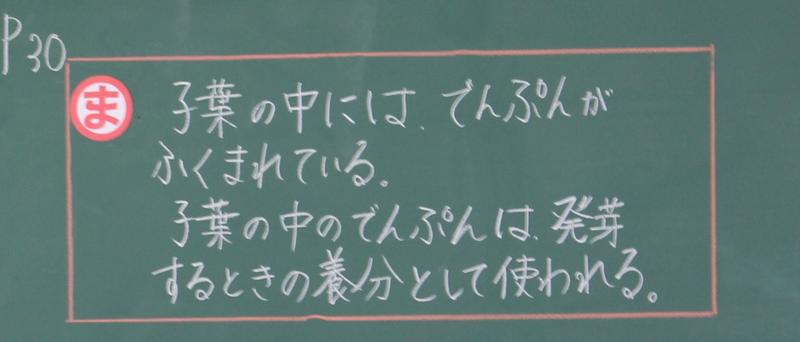 P30
ま
子葉の中には、でんぷんが
ふくまれている。
子葉の中のでんぷんは、発芽
するときの養分として使われる。